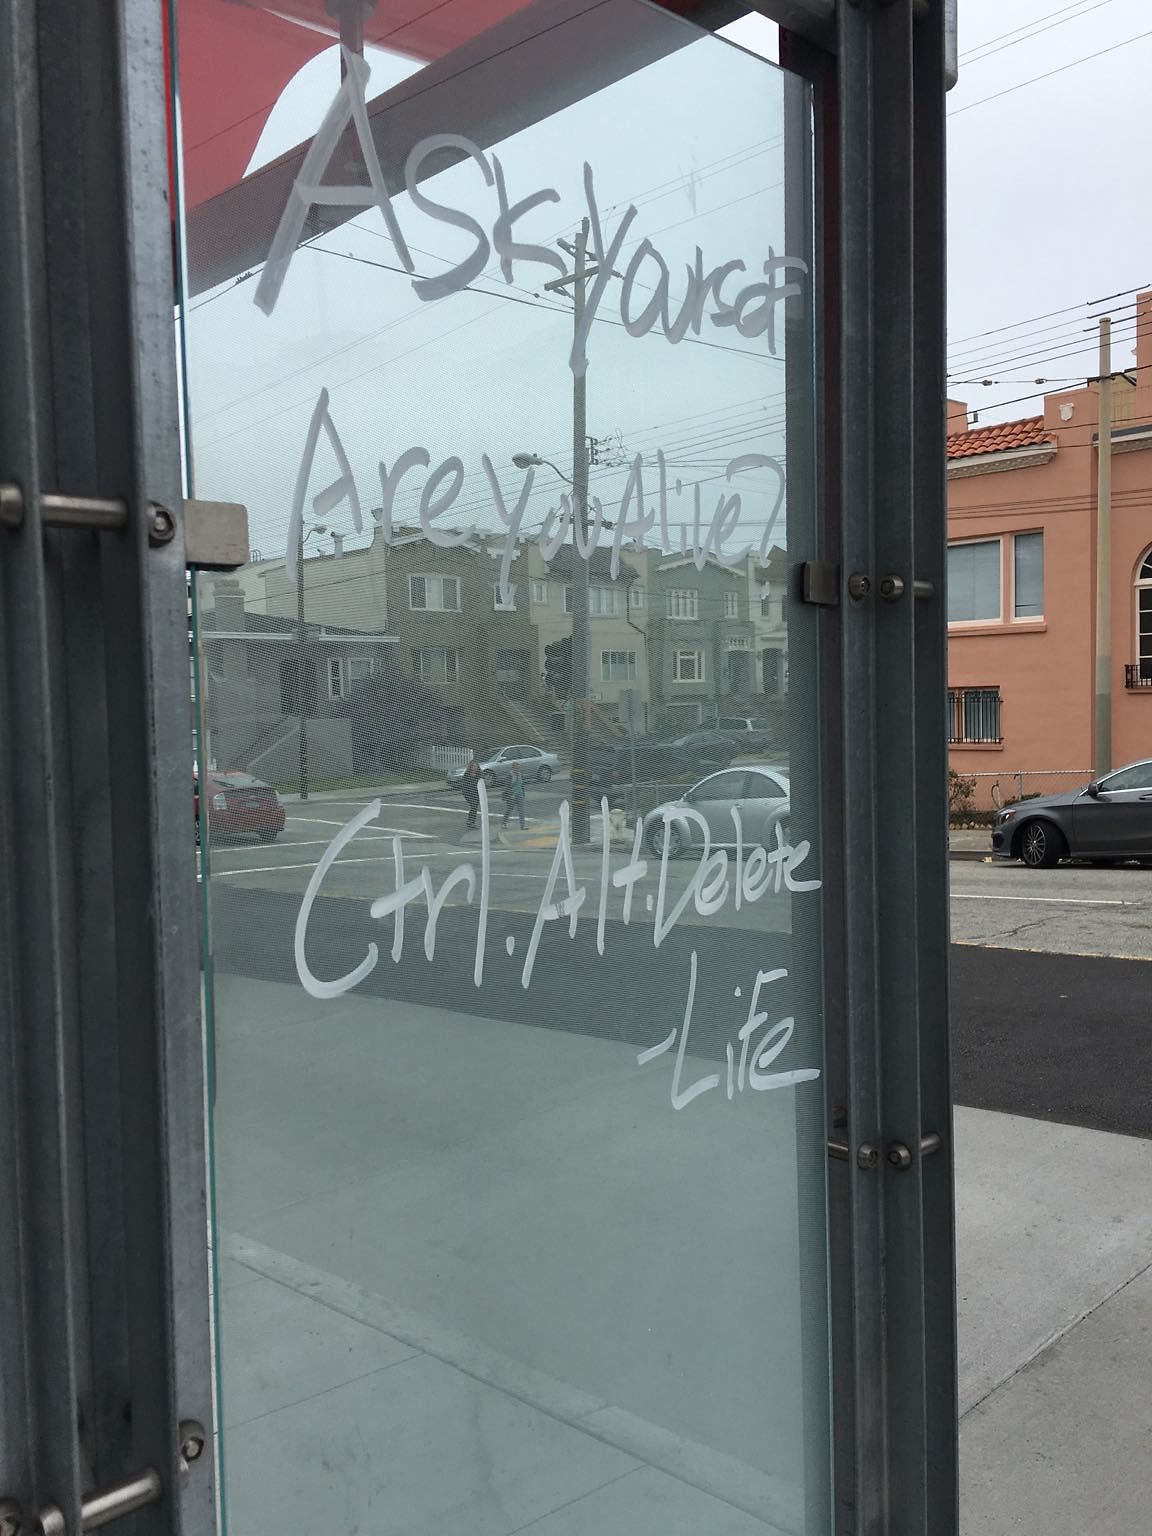 Ask Yourself
Are you Alive?
Ctrl.Alt.Delete
-Life